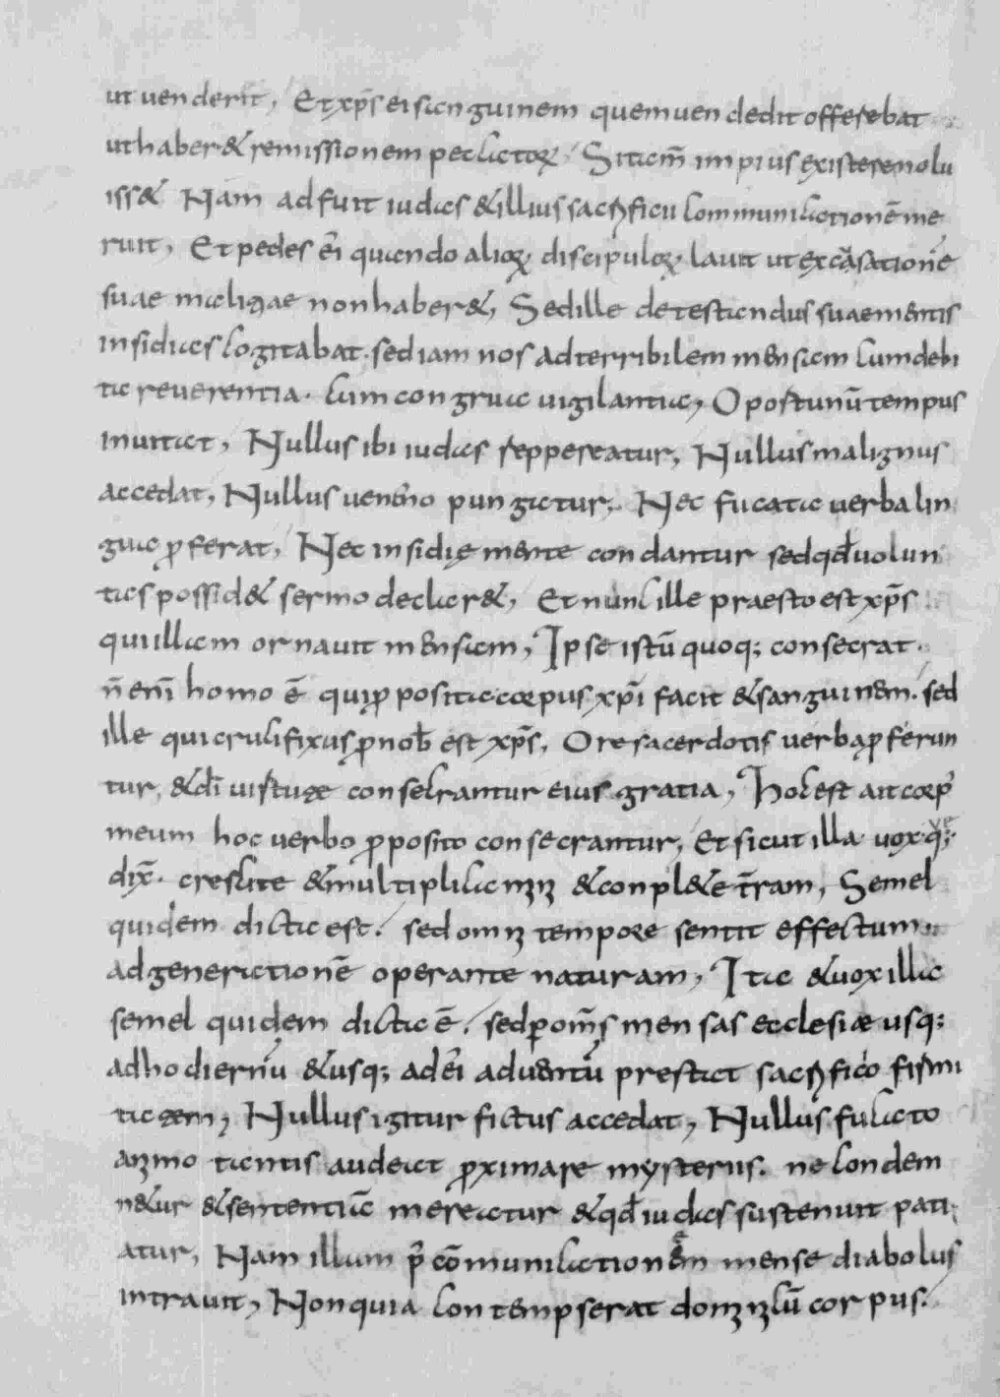 ut venderit, Et xp̄s ei sanguinem quem vendedit offerebat
ut haber& remissionem peccatoꝝ Si tam̄ impius existere nolu
iss& Nam adfuit iudas & illius sacrificii communicationē me
ruit, Et pedes ei̅ quando alioꝝ discipuloꝝ lavit ut excusationē
suae maligae non haber&, Sed ille detestandus suae mentis
insidias cogitabat. sed iam nos ad terribilem mensam cum debi
ta reverentia. cum congrua vigilantia, Oportunū tempus
invitat, Nullus ibi iudas reppereatur, Nullus malignus
accedat, Nullus veneno pungatur, Nec fucata verba lin
gua ꝓferat, Nec insidię mente condantur sed qd̄ volun
tas possid& sermo declar&, Et nunc ille praesto est xp̄s
qui illam ornavit mensam, Ipse istū quoq; consecrat.
n̄ eni̅ homo ē qui ꝓposita corpus xp̄i facit & sanguinem. sed
ille qui crucifixus ꝓ nob̄ est xp̄s, Ore sacerdotis verba ꝓferun
tur, & dī virtute consecrantur eius gratia, Hoc est ait corp'
meum hoc verbo ꝓposito consecrantur, Et sicut illa vox q;
dix̄. crescite & multiplicamini & conpl&e t̄ram, Semel
quidem dicta est. sed omni tempore sentit effectum
ad generationē operante naturam, Ita & vox illa
semel quidem dicta ē. sed ꝑ om̄s mensas ecclesiæ usq;
ad hodiernū & usq; ad ei̅ adventū prestat sacrificio firmi
tatem, Nullus igitur fictus accedat, Nullus fucato
animo tantis audeat ꝓximare mysteriis. ne condem
n&ur & sententiā mereatur & qd̄ iudas sustenuit pati
atur, Nam illum p' cōmunicationem mense diabolus
intravit, Non quia contempserat dominicū corpus.